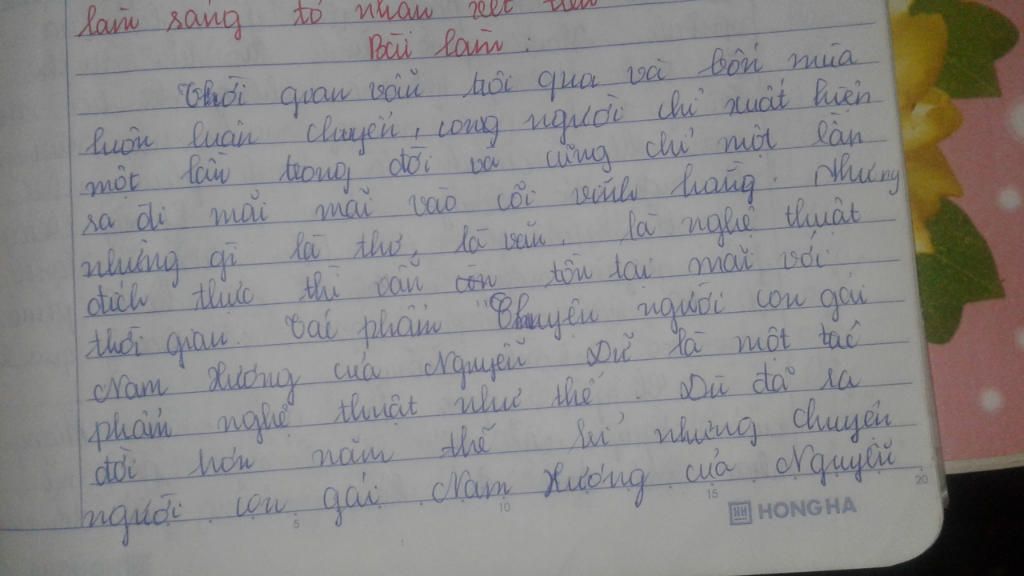 làm sáng tỏ nhận xét trên
Bài làm :
Thời gian vẫn trôi qua và bốn mùa
luôn luân chuyển, con người chỉ xuất hiện
một lần trong đời và cũng chỉ một lần
ra đi mãi mãi vào cõi vĩnh hằng. Nhưng
những gì là thơ, là văn, là nghệ thuật
đích thực thì vẫn còn tồn tại mãi với
thời gian. Tác phẩm "Chuyện người con gái
Nam Xương của Nguyễn Dữ là một tác
phẩm nghệ thuật như thế. Dù đã ra
đời hơn năm thế kỉ nhưng chuyện
người con gái Nam Xương của Nguyễn
5 10 15 20
HH HONG HA